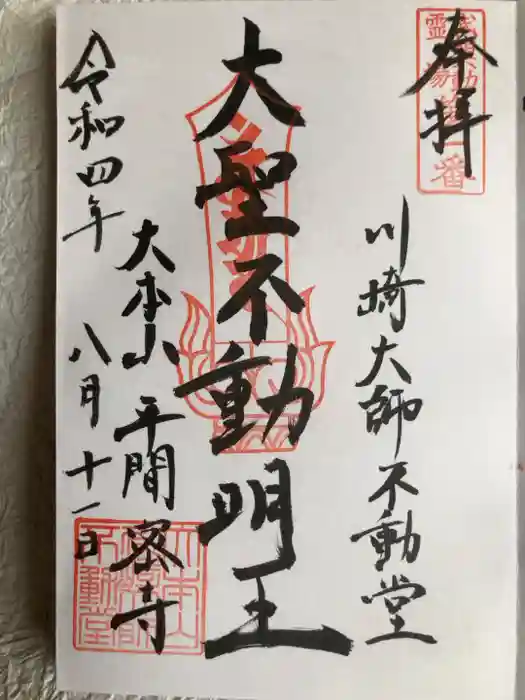 奉拝
川崎大師不動堂
大聖不動明王
大本山平間密寺
令和四年八月十一日